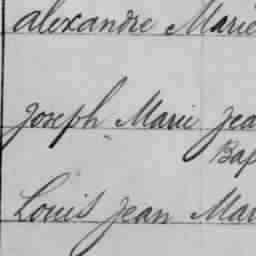 alexandre Marie
Joseph Marie Jea
Bap
Louis Jean Mar